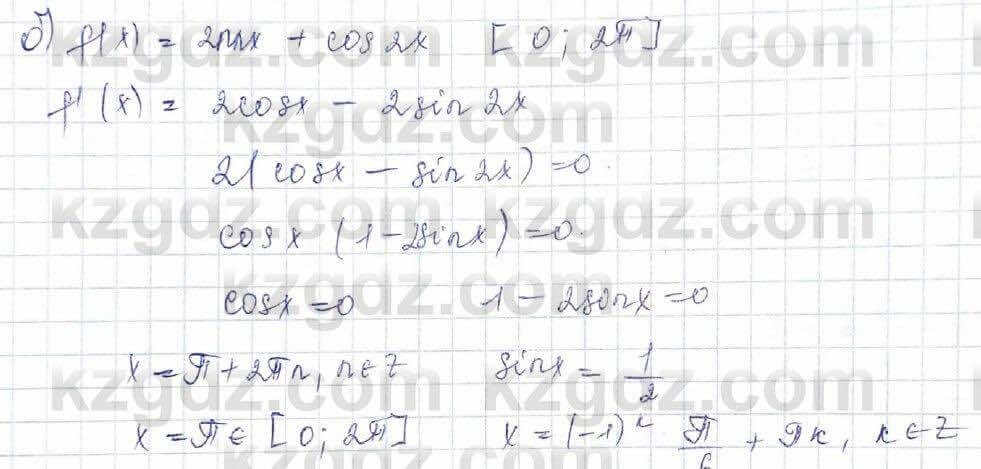 б) f(x) = 2sinx + cos 2x [0; 2π]
f'(x) = 2cosx - 2sin 2x
2(cosx - sin 2x) = 0.
cosx (1 - 2sinx) = 0.
cosx = 0 1 - 2sinx = 0
x = π + 2πn, n∈Z sinx = 1/2
x = π ∈ [0; 2π] x = (-1)^k π/6 + πk, k∈Z
kzgdz.com
kzgdz.com
kzgdz.com
kzgdz.com
kzgdz.com
kzgdz.com